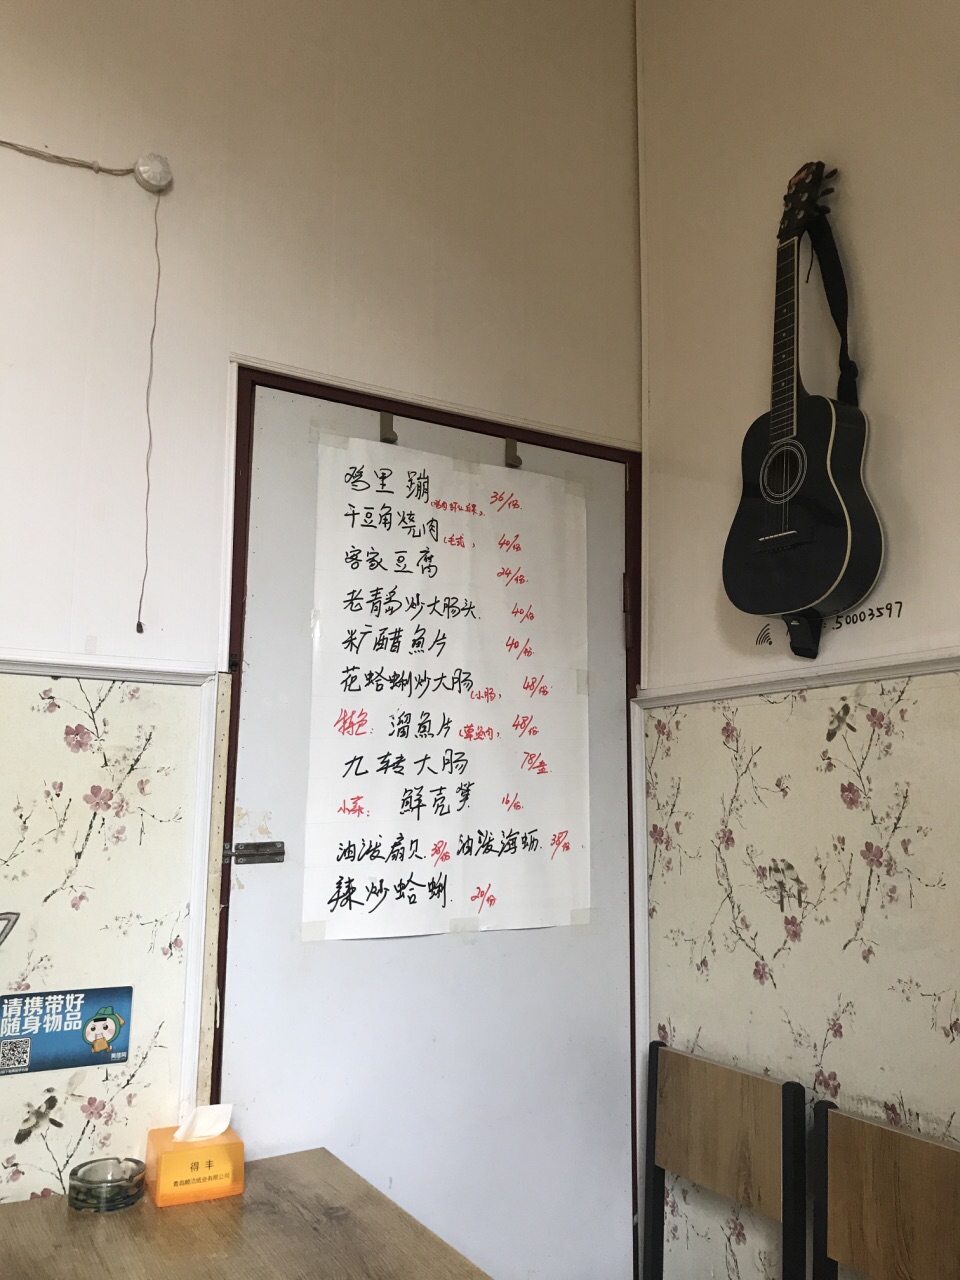 鸡里蹦 36/份
干豆角烧肉(毛式) 40/份
客家豆腐 24/份
老青岛炒大肠头 40/份
米疒醋魚片 40/份
花蛤蜊炒大肠(小肠) 48/份
特色: 溜魚片 48/份
九转大肠 78/盘
小菜: 鲜壳 16/份
油泼扇贝 38/份 油泼海蛎 38/份
辣炒蛤蜊 20/份
50003597
请携带好
随身物品
美团网
得丰
青岛顺洁纸业有限公司